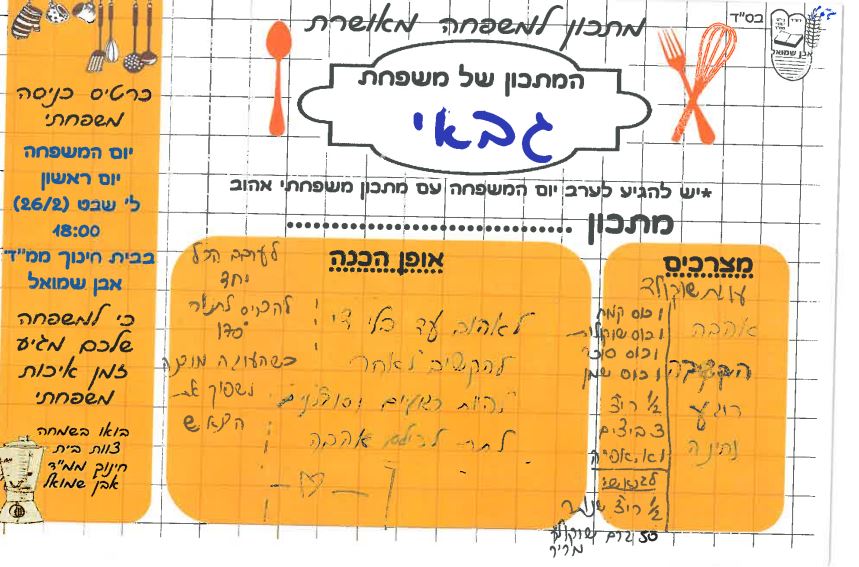 בס"ד
אבן שמואל
מתכון למשפחה מאושרת
המתכון של משפחת
גבאי
*יש להגיע לערב יום המשפחה עם מתכון משפחתי אהוב
מתכון
מצרכים
עוגת שוקולד
אהבה
הקשבה
רוגע
נתינה
1 כוס קמח
1 כוס שוקולית
1 כוס סוכר
1 כוס שמן
1/2 ריצ'
3 ביצים
1 א.אפיה
לגנאש:
1/2 ריצ'
50 גרם שוקולד
מריר
אופן הכנה
לאהוב עד בלי די
להקשיב לאחר
להיות רגועים וסבלניים
לתת לכולם אהבה
לערבב הכל
יחד
להכניס לתנור
170°
כשהעוגה מוכנה
לשפוך את
הגנאש
כרטיס כניסה
משפחתי
יום המשפחה
יום ראשון
ל' שבט (26/2)
18:00
בבית חינוך ממ"ד
אבן שמואל
כי למשפחה
שלכם מגיע
זמן איכות
משפחתי
בואו בשמחה
צוות בית
חינוך ממ"ד
אבן שמואל